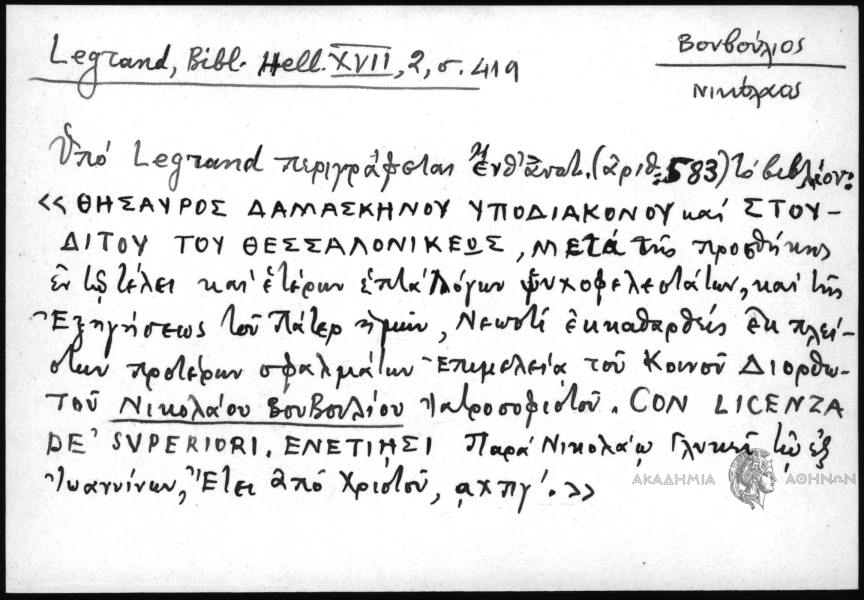 Legrand, Bibl. Hell. XVII, 2, σ. 419
Βουβούλιος
Νικόλαος
Ὑπό Legrand περιγράφεται ἡ ἐνθ᾽ ἀνωτ. (ἀριθ. 583) τὸ βιβλίον:
<< ΘΗΣΑΥΡΟΣ ΔΑΜΑΣΚΗΝΟΥ ΥΠΟΔΙΑΚΟΝΟΥ καί ΣΤΟΥ-
ΔΙΤΟΥ ΤΟΥ ΘΕΣΣΑΛΟΝΙΚΕΩΣ, Μετά τῆς προσθήκης
ἐν τῷ τέλει καί ἑτέρων ἑπτά λόγων ψυχοφελεστάτων, καί τῆς
Ἐξηγήσεως τοῦ Πάτερ ἡμῶν, Νεωστί ἐκκαθαρθείς ἐκ πλεί-
στων προτέρων σφαλμάτων Ἐπιμελεία τοῦ Κοινοῦ Διορθω-
τοῦ Νικολάου Βουβουλίου Ἰατροσοφιστοῦ. CON LICENZA
DE' SVPERIORI. ΕΝΕΤΙΗΣΙ Παρά Νικολάῳ Γλυκεῖ τῷ ἐξ
Ἰωαννίνων, Ἔτει ἀπό Χριστοῦ, αχπγ΄. >>
ΑΚΑΔΗΜΙΑ ΑΘΗΝΩΝ